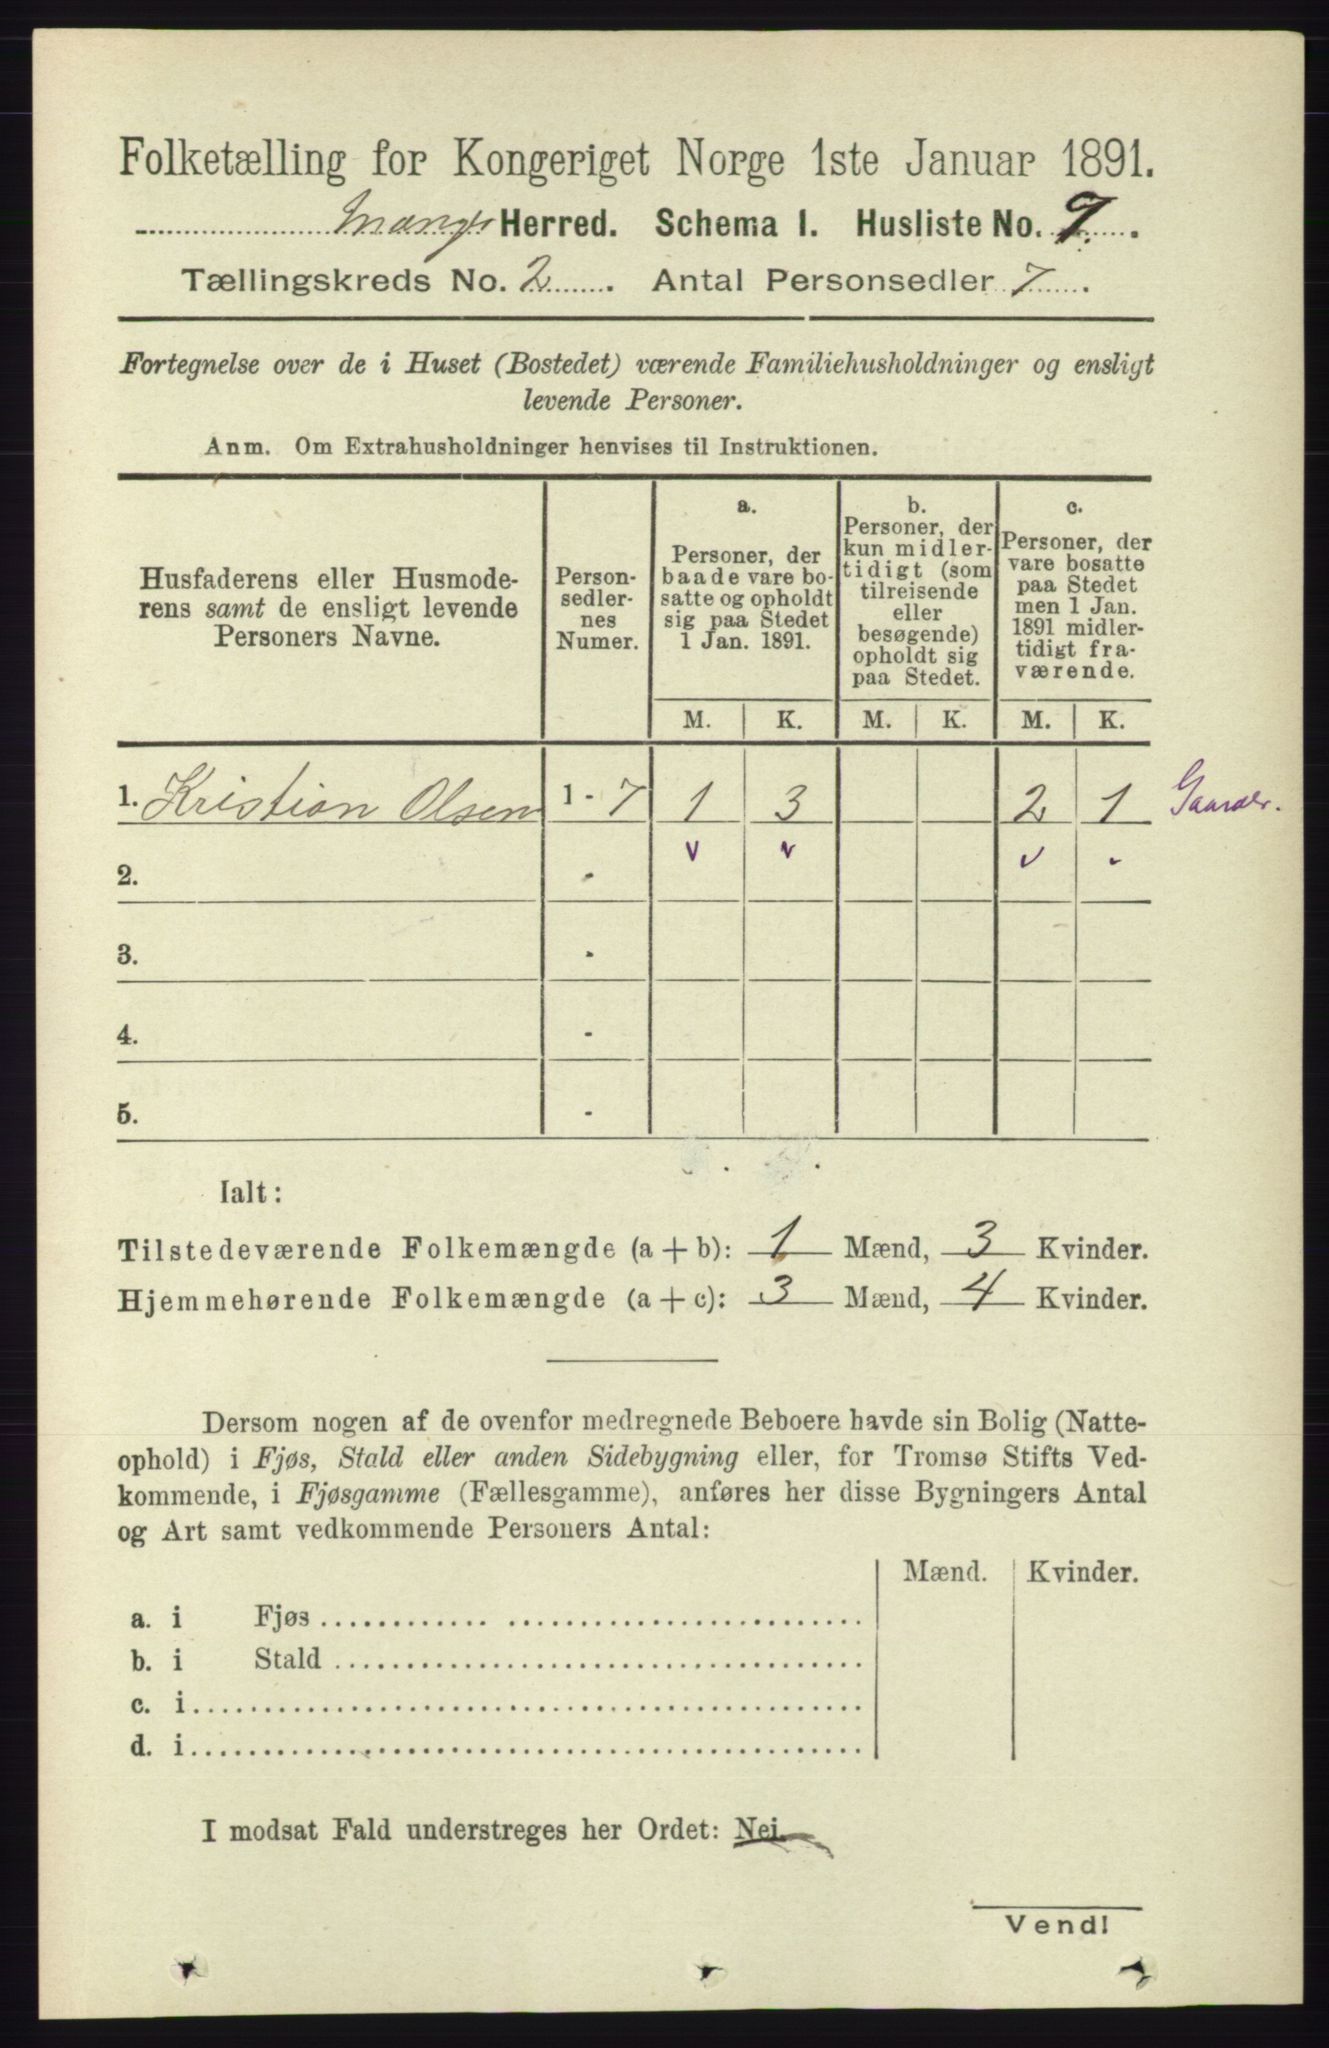 Folketælling for Kongeriget Norge 1ste Januar 1891.
Manger Herred. Schema I. Husliste No. 7.
Tællingskreds No. 2. Antal Personsedler 7.
Fortegnelse over de i Huset (Bostedet) værende Familiehusholdninger og ensligt
levende Personer.
Anm. Om Extrahusholdninger henvises til Instruktionen.
Husfaderens eller Husmode-
rens samt de ensligt levende
Personers Navne.
Person-
sedler-
nes
Numer.
a.
Personer, der
baade vare bo-
satte og opholdt
sig paa Stedet
1 Jan. 1891.
b.
Personer, der
kun midler-
tidigt (som
tilreisende
eller
besøgende)
opholdt sig
paa Stedet.
c.
Personer, der
vare bosatte
paa Stedet
men 1 Jan.
1891 midler-
tidigt fra-
værende.
M. K. M. K. M. K.
1. Kristian Olsen 1 - 7 1 3 2 1
2. -
3. -
4. -
5. -
Ialt:
Tilstedeværende Folkemængde (a + b): 1 Mænd, 3 Kvinder.
Hjemmehørende Folkemængde (a + c): 3 Mænd, 4 Kvinder.
Dersom nogen af de ovenfor medregnede Beboere havde sin Bolig (Natte-
ophold) i Fjøs, Stald eller anden Sidebygning eller, for Tromsø Stifts Ved-
kommende, i Fjøsgamme (Fællesgamme), anføres her disse Bygningers Antal
og Art samt vedkommende Personers Antal:
Mænd. Kvinder.
a. i Fjøs
b. i Stald
c. i
d. i
I modsat Fald understreges her Ordet: Nei.
Vend!